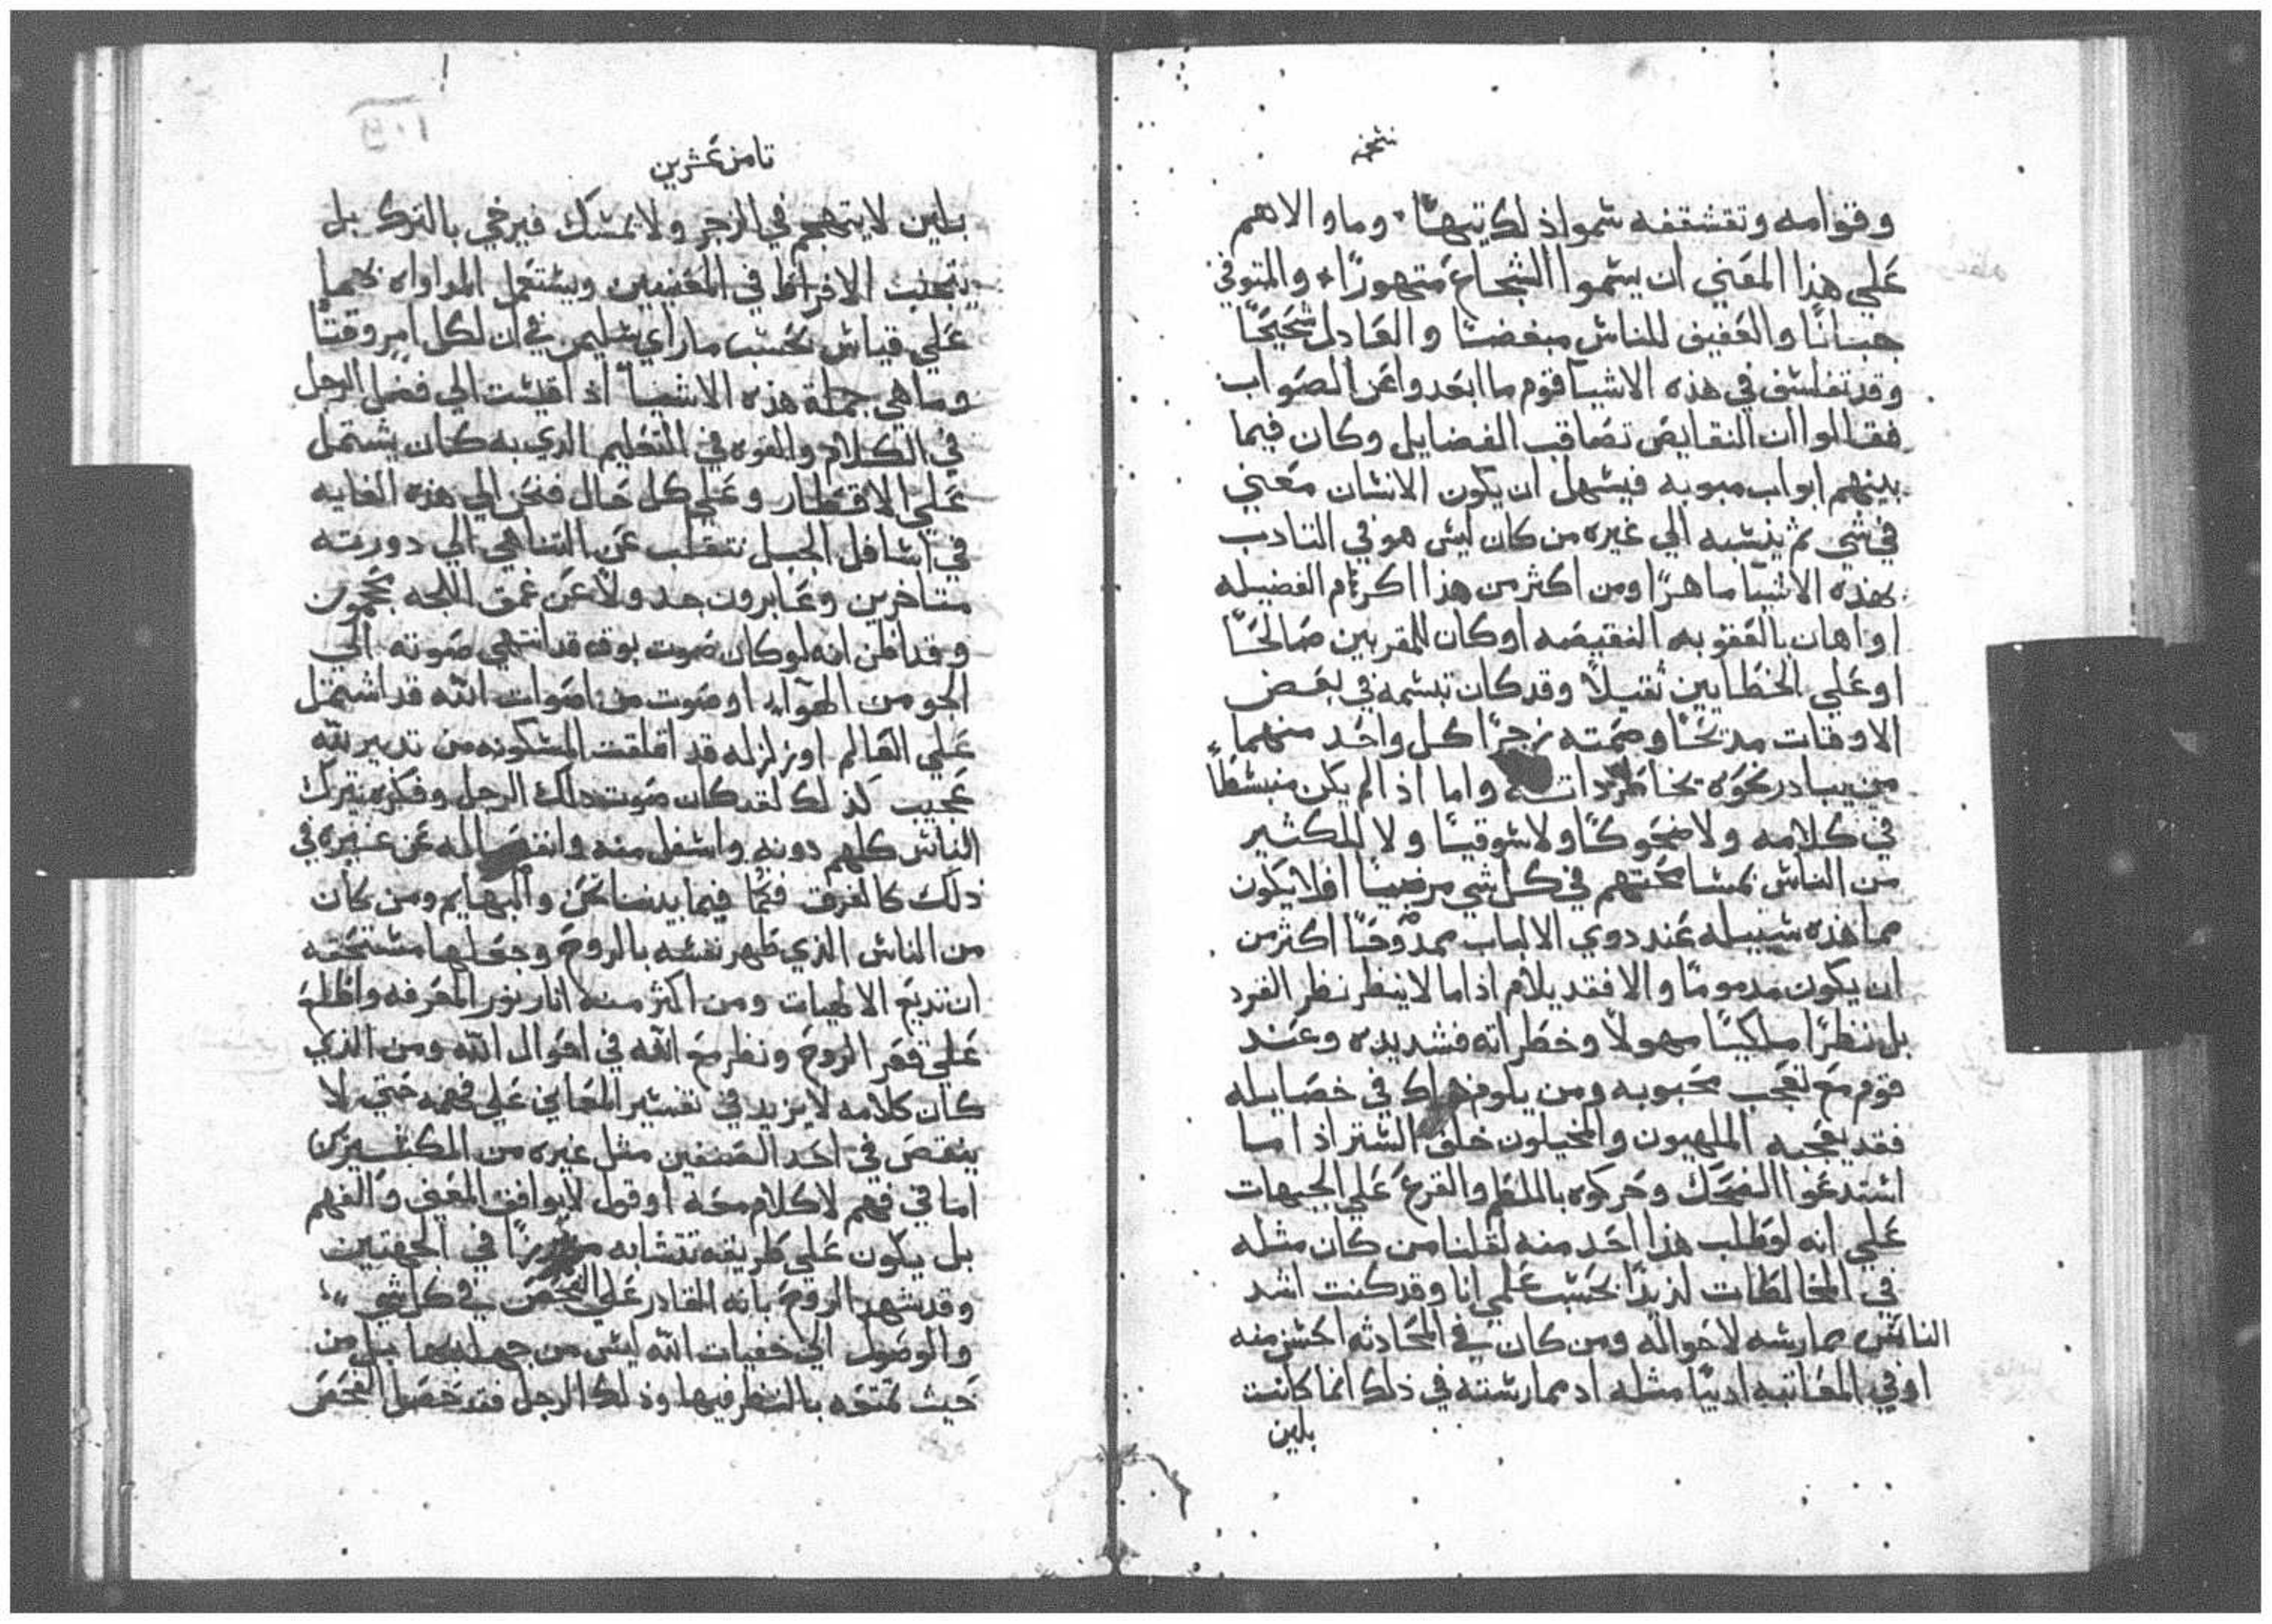 نسخه
وقوامه وتقشقفه سموا ذلك تيهاً وما والاهم
علي هذا المعني ان يسموا الشجاع متهوراً والمتوقي
جباناً والعفيف للناس مبغضاً والعادل شحيحاً
وقد تفلسف في هذه الاشيا قوم ما ابعدوا عن الصواب
فقالوا ان النقايص تصاقب الفضايل وكان فيما
بينهم ابواب مبوبه فيسهل ان يكون الانسان معني
في شي ثم ينسبه الي غيره من كان ليس هو في التادب
بهذه الاشيا ماهراً ومن اكثر من هذا اكرام الفضيله
او اهان بالعقوبه النقيصه او كان للمقربين صالحاً
او علي الخطايين ثقيلاً وقد كان تبسمه في بعض
الاوقات مديحاً وصمته زجراً كل واحد منهما
يبادر نحوه بخاطر ذاته واما اذ لم يكن منبسطاً
في كلامه ولا ضحوكاً ولا سوقياً ولا للكثير
من الناس بمسامحتهم في كل شي مرضياً افلا يكون
مما هذه سبيله عند دوي الالباب ممدوحاً اكثر من
ان يكون مدموماً والا فقد يلام اذا ما لا ينظر نظر القرد
بل نظراً ملكياً مهولاً وخطراته فشديده وعند
قوم مع لعجب محبوبه ومن يلوم في خصايله
فقد يعجبه الملهيون والمخيلون خلف الستر اذا ما
استدعوا الضحك وحركوه باللطم والقرع علي الجبهات
علي انه لو طلب هذا احد منه لقلنا من كان مثله
في المخالطات لذيذاً بحسب علمي انا وقد كنت اشد
الناس ممارسه لاحواله ومن كان في المحادثه احسن منه
او في المعاتبه اديباً مثله اد ممارسته في ذلك انما كانت
بلين
تامن عشرين
بلين لا يتهجم في الزجر ولا يمسك فيرخي بالترك بل
يتجنب الافراط في المعنيين ويستعمل المداواه بهما
علي قياس بحسب ما راي سليمن في ان لكل امر وقتاً
وما هي جملة هذه الاشيا اذا قيست الي فضل الرجل
في الكلام والقوه في التعليم الدي به كان يشتمل
علي الاقطار وعلي كل حال فنحن الي هذه الغايه
في اسافل الجبل نتقلب عن التناهي الي دورته
متاخرين وعابرون جد ولا عن عمق اللجه بحجون
وقد اظن انه لو كان صوت بوقه قد انتهي صوته الي
الجو من الهوآء او صوت من اصوات الله قد اشتمل
علي العالم او زلزله قد اقلقت المسكونه من تدبير لله
عجيب كذلك لقد كان صوت ذلك الرجل وفكره تترك
الناس كلهم دونه واسفل منه وانفصاله عن غيره في
دلك كالفرق فيما بيننا نحن والبهايم ومن كان
من الناس الذي طهر نفسه بالروح وجعلها مستحقه
ان تديع الالهيات ومن اكثر منه انار نور المعرفه واطلع
علي قعر الروح ونظر مع الله في احوال الله ومن الذي
كان كلامه لا يزيد في تفسير المعاني علي فهمه حتي لا
ينقص في احد الصنفين مثل غيره من المكثيرين
اما في فهم لا كلام معه او قول لا يوافق المعني والفهم
بل يكون علي طريقه تتشابه في الجهتين
وقد شهد الروح بانه القادر علي الفحص في كل شي
والوصول الي خفيات الله ليس من جهله بها بل من
حيث تمتعه بالنظر فيها وذلك الرجل فقد حصل الفحص